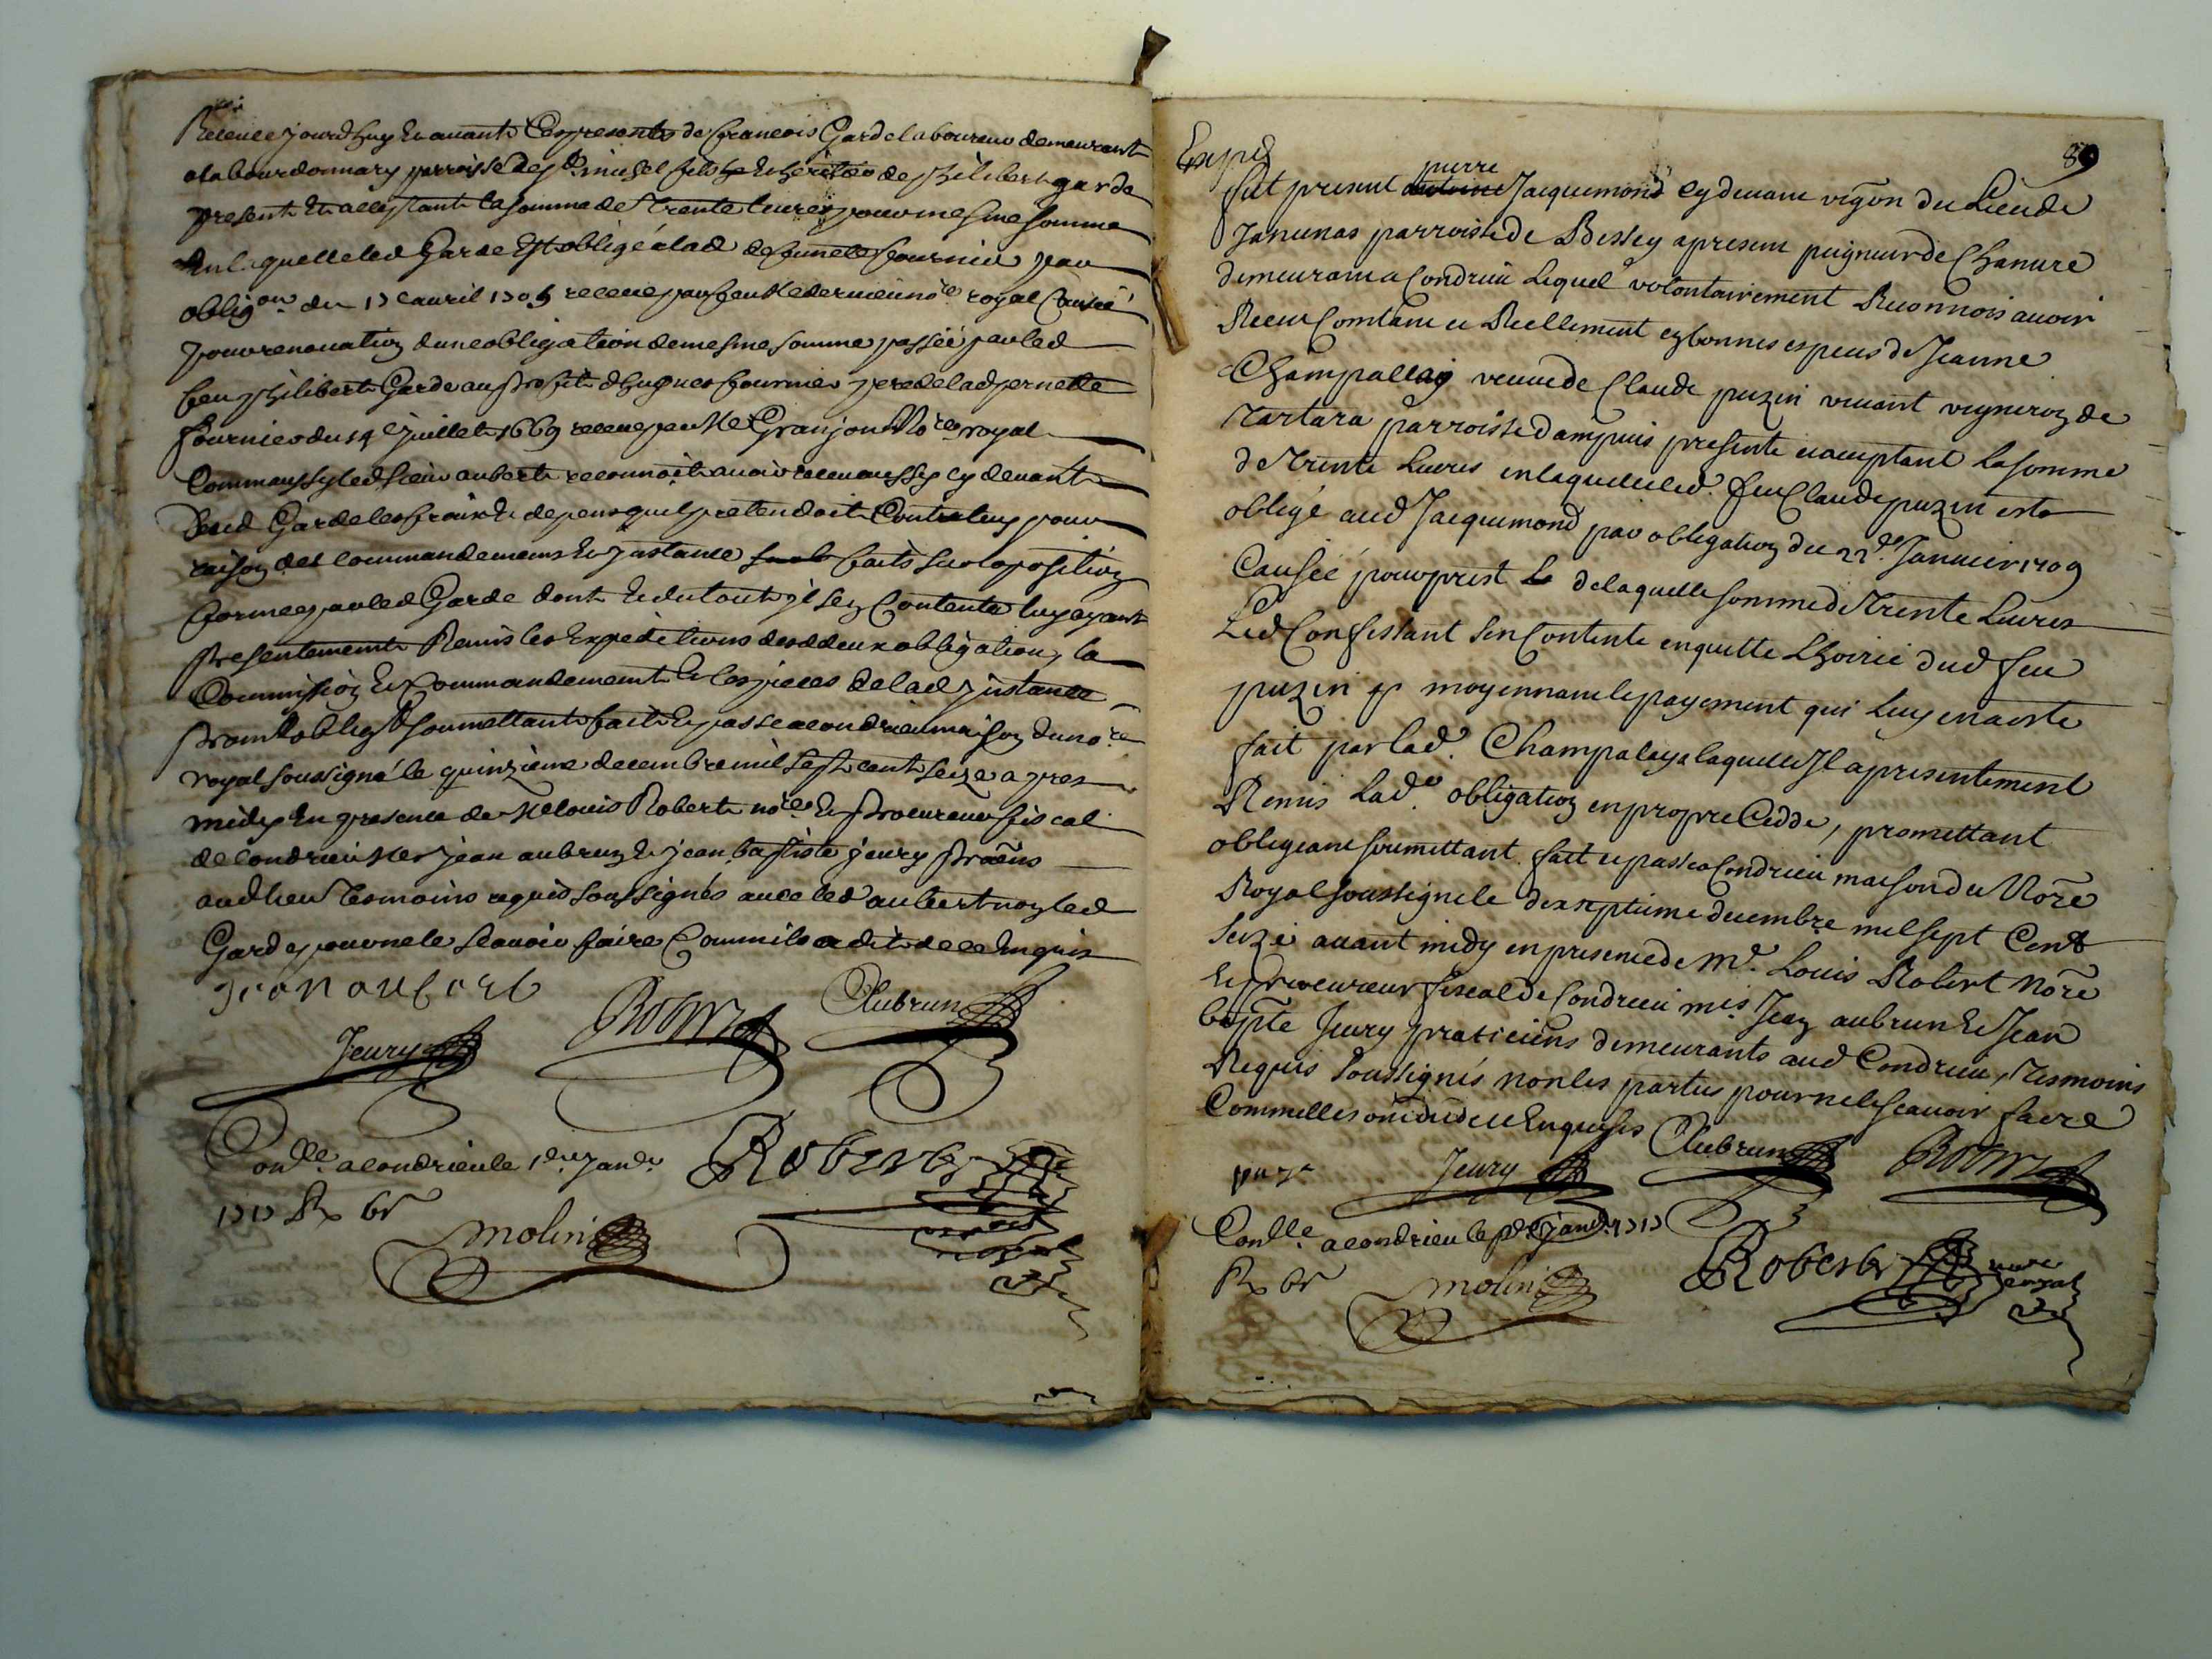 Receue jourdhuy et auant Ces presentes de francois Garde laboureur demeurant
a la bourdonnary parroisse de st michel fils et heritier de philibert garde
present et acceptant la somme de trente liures pour mesme somme
en laquelle led Garde est obligé a lad defunete fournier par
oblig.on du 17e auril 1705 receue par feu Me dernieu no.re royal Causée
pour renouation dune obligation de mesme somme passée par led
feu philibert Garde au proffit d'hugues fournier pere de lad pernette
fournier du 14e juillet 1669 receue par Me Granjon No.re royal
Comm aussy led sieur aubert reconnoit auoir receu aussy cy deuant
dud Garde les fraix et depens quil pretendoit Contre luy pour
raison des commandemens et jnstance faits sur loposition
formee par led Garde dont et du tout jl sen Contente luy ayant
presentement Remis les Expeditions desd deux obligation, la
Commission et Commandement et les pieces de lad jnstance
promett oblig soumettant fait et passe a condrieu maison du no.re
royal soussigné le quinzieme decembre mil sept cent seize apres
midy en presence de Me louis Robert no.re et procureur fiscal
de condrieu Mes jean aubrun et jean baptiste jeury praens
aud lieu tesmoins requis soussignés auec led aubert non led
Garde pour ne le scauoir faire Comm il a dit de ce enquis
jean aubert
Jeury Robert Aubrun
Con.lle a condrieu le 1er janr
1717 R 6s
molin Robert
89
Exped
pierre
fut present antoine Jacquemond cy deuant vigon du Lieu de
Janunas parroisse de Bessey a present peigneur de Chanure
demeurant a Condrieu Lequel volontairement Reconnois auoir
Receu Comtant et Reellement en bonnes espeus de Jeanne
Champallay veuue de Claude puzin viuant vigneron de
Tartara parroisse dampuis presente et aceptant La somme
de Trente Liures en laquelle led. feu Claude puzin este
obligé aud Jacquemond par obligation du 22.e Januier 1709
Causée pour prest de laquelle somme de Trente Liures
Led Confessant sen Contente en quitte Lhoirie dud feu
puzin moyennant le payement qui Luy en a este
fait par lad.e Champalay a laquelle Jl a presentement
Remis Lad.e obligation en propre Cedde, promettant
obligeant soumettant. fait et passé a Condrieu maison du Nore
Royal soussigne le dix septieme decembre mil sept Cent
seize auant midy en presence de Me. Louis Robert Nore
et procureur fiscal de Condrieu mes. Jean aubrun et Jean
bapte Jeury praticiens demeurants aud Condrieu, Tesmoins
Requis soussignés non les parties pour ne le scauoir faire
Comm elles ont dit de ce enquises
Jeury Aubrun Robert
Con.lle a condrieu le p.er janr 1717
R 6s molin Robert nore royal